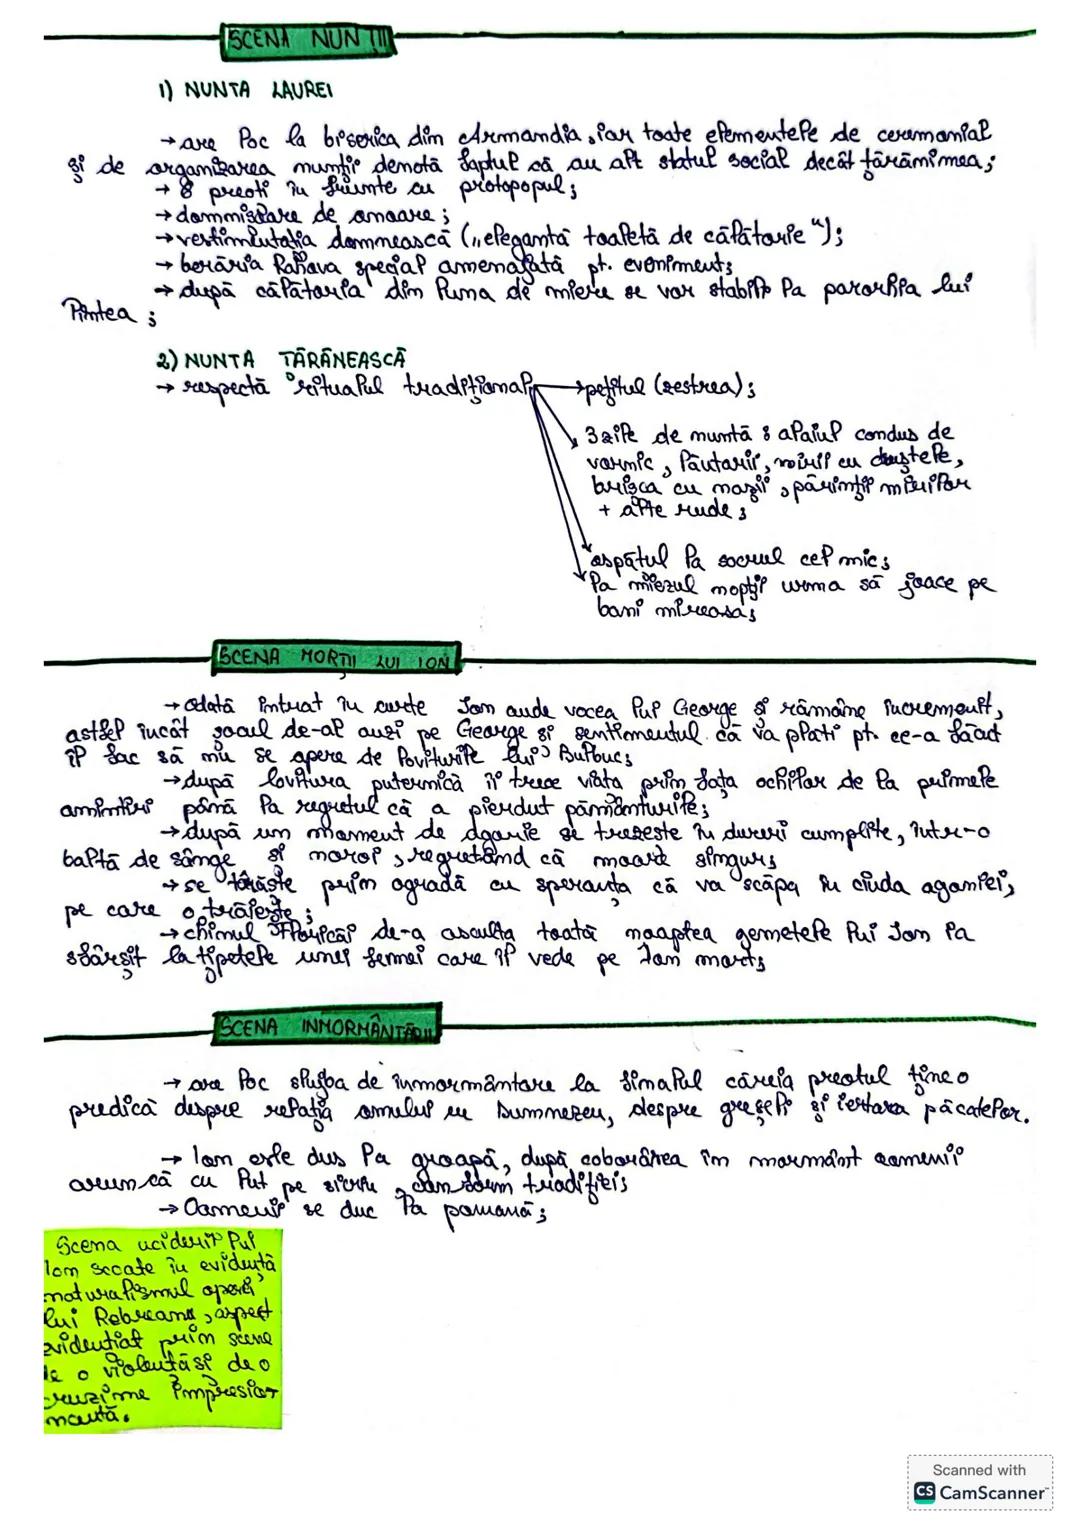 SCENA NUNȚII
1) NUNTA LAUREI
→ are loc la biserica din Armandia, iar toate elementele de ceremonial
și de organizarea nunții denotă faptul că au alt statut social decât țărănimea;
→ 8 preoți în frunte cu protopopul;
→ domnișoare de onoare;
→ vestimentația domnească („elegantă toaletă de călătorie");
→ berăria Rahova special amenajată pt. eveniment;
→ după călătoria din luna de miere se vor stabili la parohia lui
Pintea;
2) NUNTA ȚĂRĂNEASCĂ
→ respectă ritualul tradițional → pețitul (zestrea);
3 zile de nuntă: alaiul condus de
vornic, lăutarii, mirii cu druștele,
brișca cu nașii, părinții mirilor
+ alte rude;
ospățul la socrul cel mic;
la miezul nopții urma să joace pe
bani mireasa;
SCENA MORȚII LUI ION
→ odată intrat în curte Ion aude vocea lui George și rămâne încremenit,
astfel încât șocul de-al auzi pe George și sentimentul că va plăti pt. ce-a făcut
îl fac să nu se apere de loviturile lui Bulbuc;
→ după lovitura puternică îi trece viața prin fața ochilor de la primele
amintiri până la regretul că a pierdut pământurile;
→ după un moment de agonie se trezește în dureri cumplite, într-o
baltă de sânge și noroi, regretând că moare singur;
→ se târăște prin ogradă cu speranța că va scăpa în ciuda agoniei,
pe care o trăiește;
→ chinul Floricăi de-a asculta toată noaptea gemetele lui Ion ia
sfârșit la țipetele unei femei care îl vede pe Ion mort;
SCENA INMORMÂNTĂRII
→ are loc slujba de înmormântare la finalul căreia preotul ține o
predică despre relația omului cu Dumnezeu, despre greșeli și iertarea păcatelor.
→ Ion este dus la groapă, după coborârea în mormânt oamenii
aruncă cu lut pe sicriu, conform tradiției;
→ Oamenii se duc la pomană;
Scena uciderii lui
Ion scoate în evidență
naturalismul operei
lui Rebreanu, aspect
evidențiat prin scene
de o violență și de o
cruzime impresio-
nantă.
Scanned with
CS CamScanner